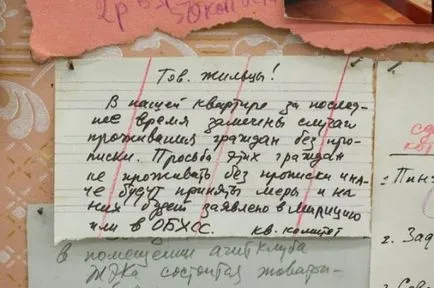 2р 50коп
Тов. жильцы!
В нашей квартире за послед-
нее время замечены случаи
проживания граждан без про-
писки. Просьба этих граждан
не проживать без прописки ина-
че будут приняты меры и на
них будет заявлено в милицию
или в ОБХСС. кв. комитет
в помещении агитклуба
ЖЭКа состоится товари-
1. Пин-
2. Зад